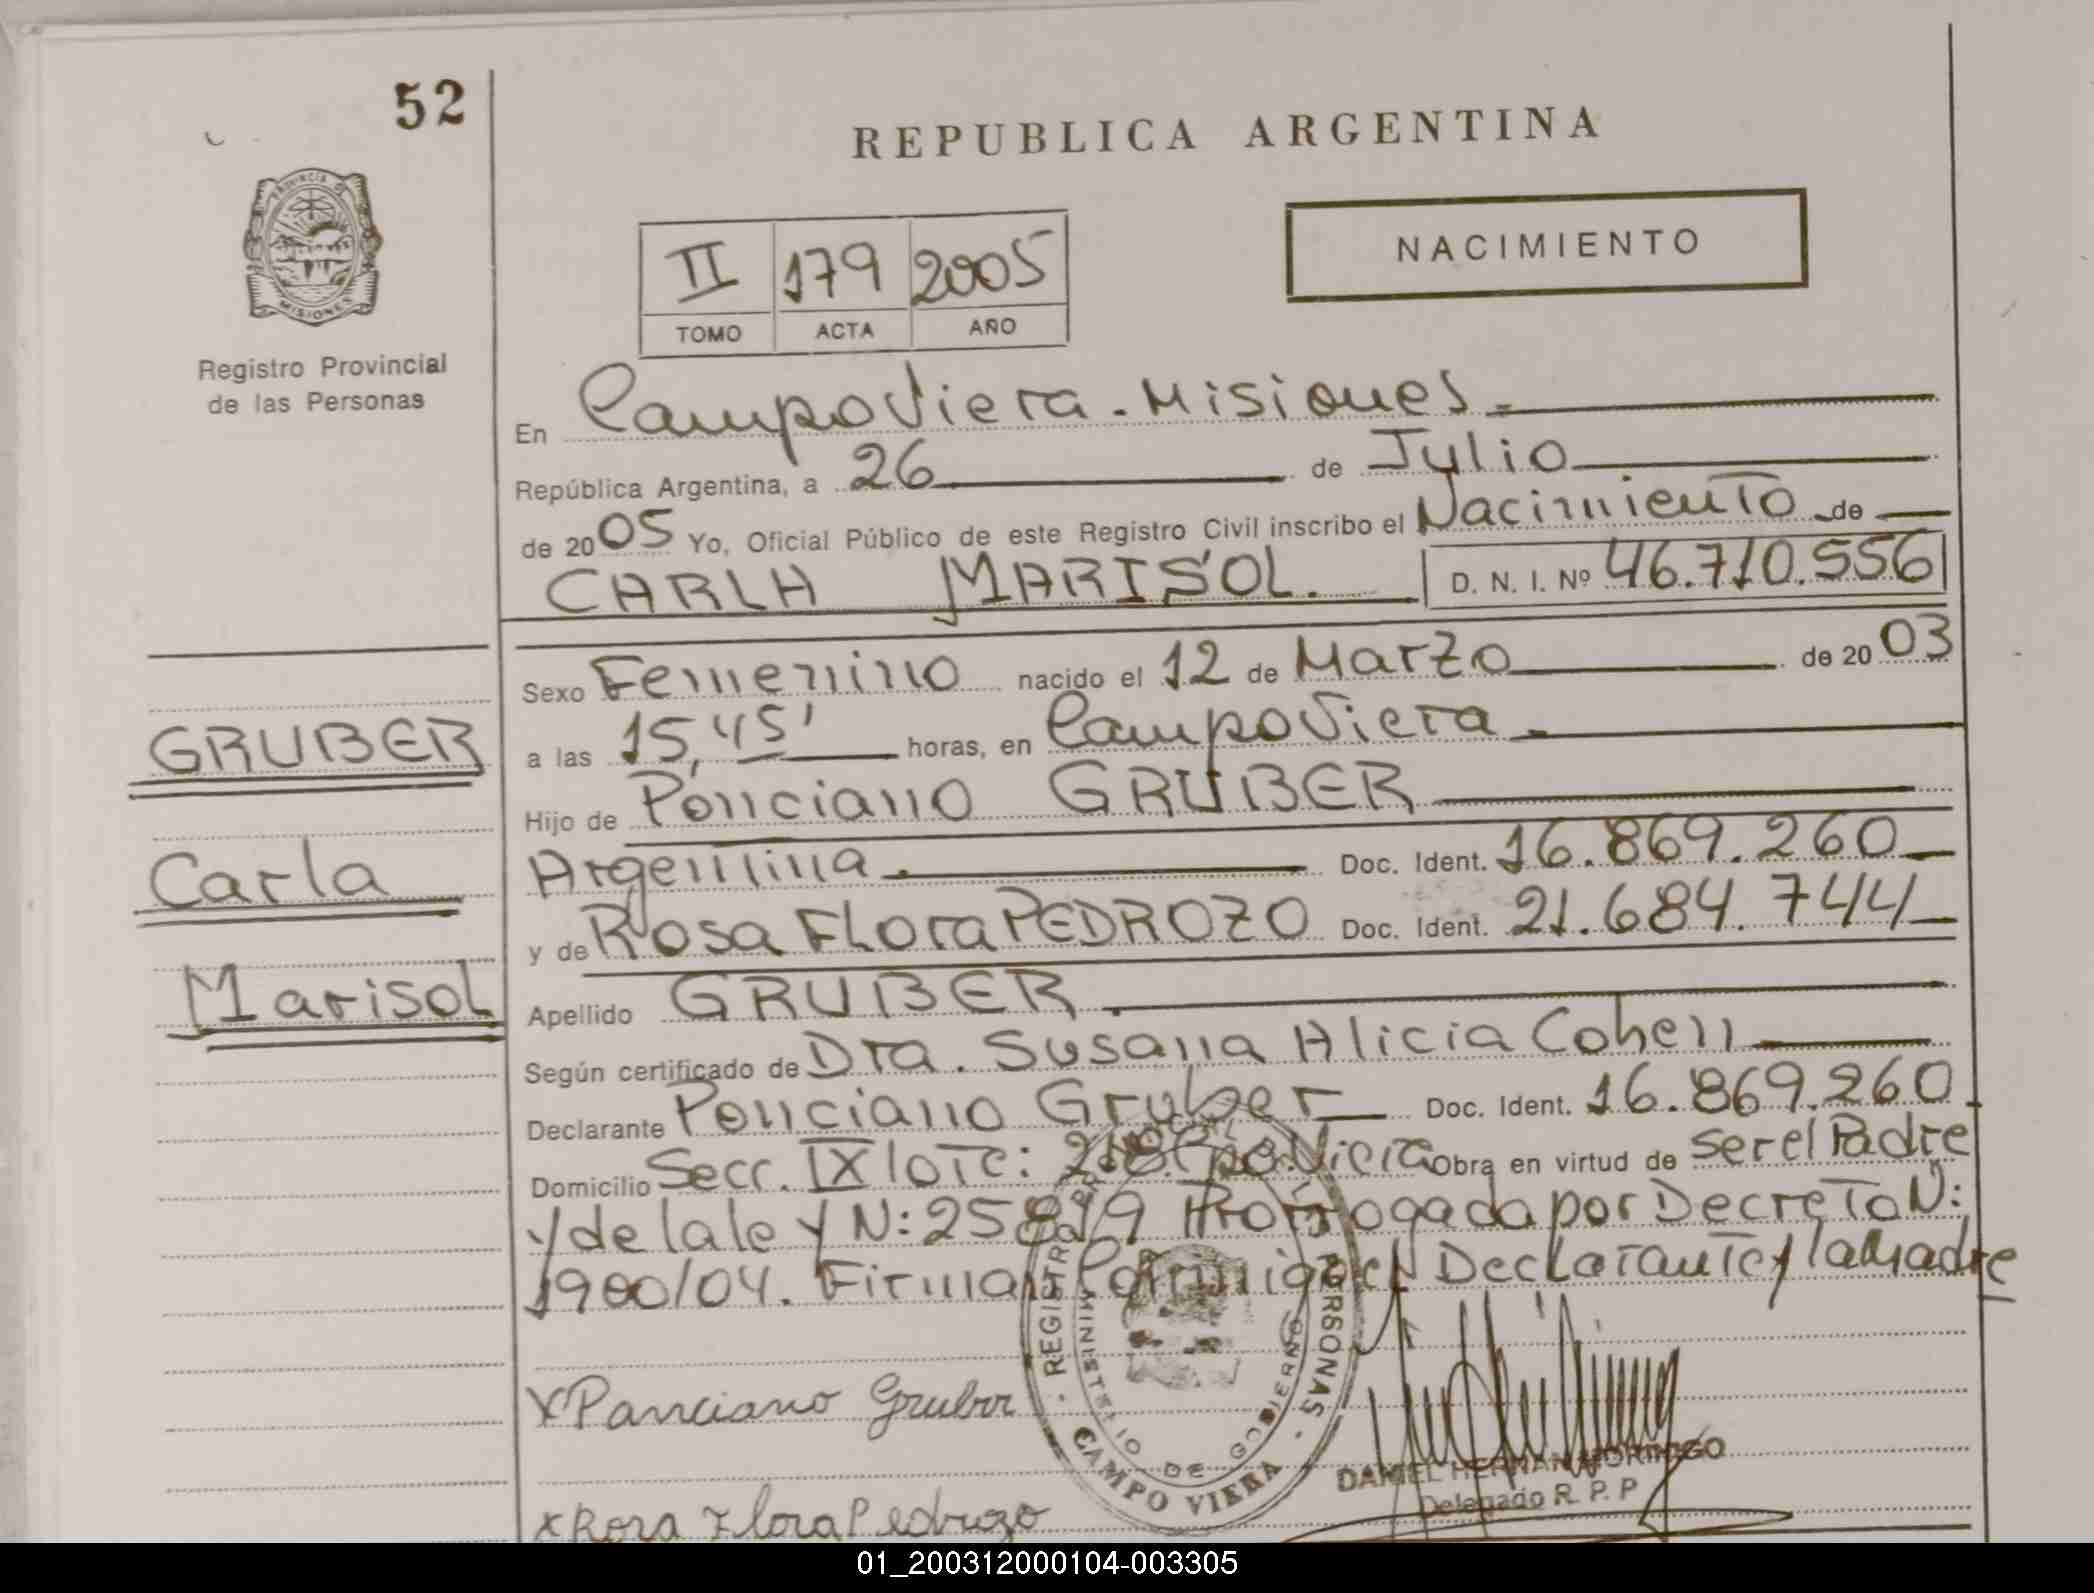 52
REPUBLICA ARGENTINA
PROVINCIA DE
MISIONES
Registro Provincial
de las Personas
NACIMIENTO
II 179 2005
TOMO ACTA AÑO
En Campo Viera - Misiones.=
República Argentina, a 26 de Julio
de 2005 Yo, Oficial Público de este Registro Civil inscribo el Nacimiento de
CARLA MARISOL. D. N. I. Nº 46.710.556
Sexo Femenino nacido el 12 de Marzo de 2003
a las 15,45' horas, en Campo Viera
Hijo de Ponciano GRUBER
Argentina. Doc. Ident. 16.869.260
y de Rosa Flora PEDROZO Doc. Ident. 21.684.744
Apellido GRUBER.
Según certificado de Dra. Susana Alicia Cohen
Declarante Ponciano Gruber Doc. Ident. 16.869.260
Domicilio Secc. IX lote: Cpo. Viera Obra en virtud de ser el Padre
y de la ley N: 25819 Prorrogada por Decreto N:
1900/04. Firman Conmigo el Declarante y la Madre
GRUBER
Carla
Marisol
X Panciano Gruber
X Rosa Flora Pedrozo
REGISTRO PERSONAS
MINISTERIO DE GOBIERNO
CAMPO VIERA
DANIEL HERNAN MORINIGO
Delegado R. P. P
01_200312000104-003305